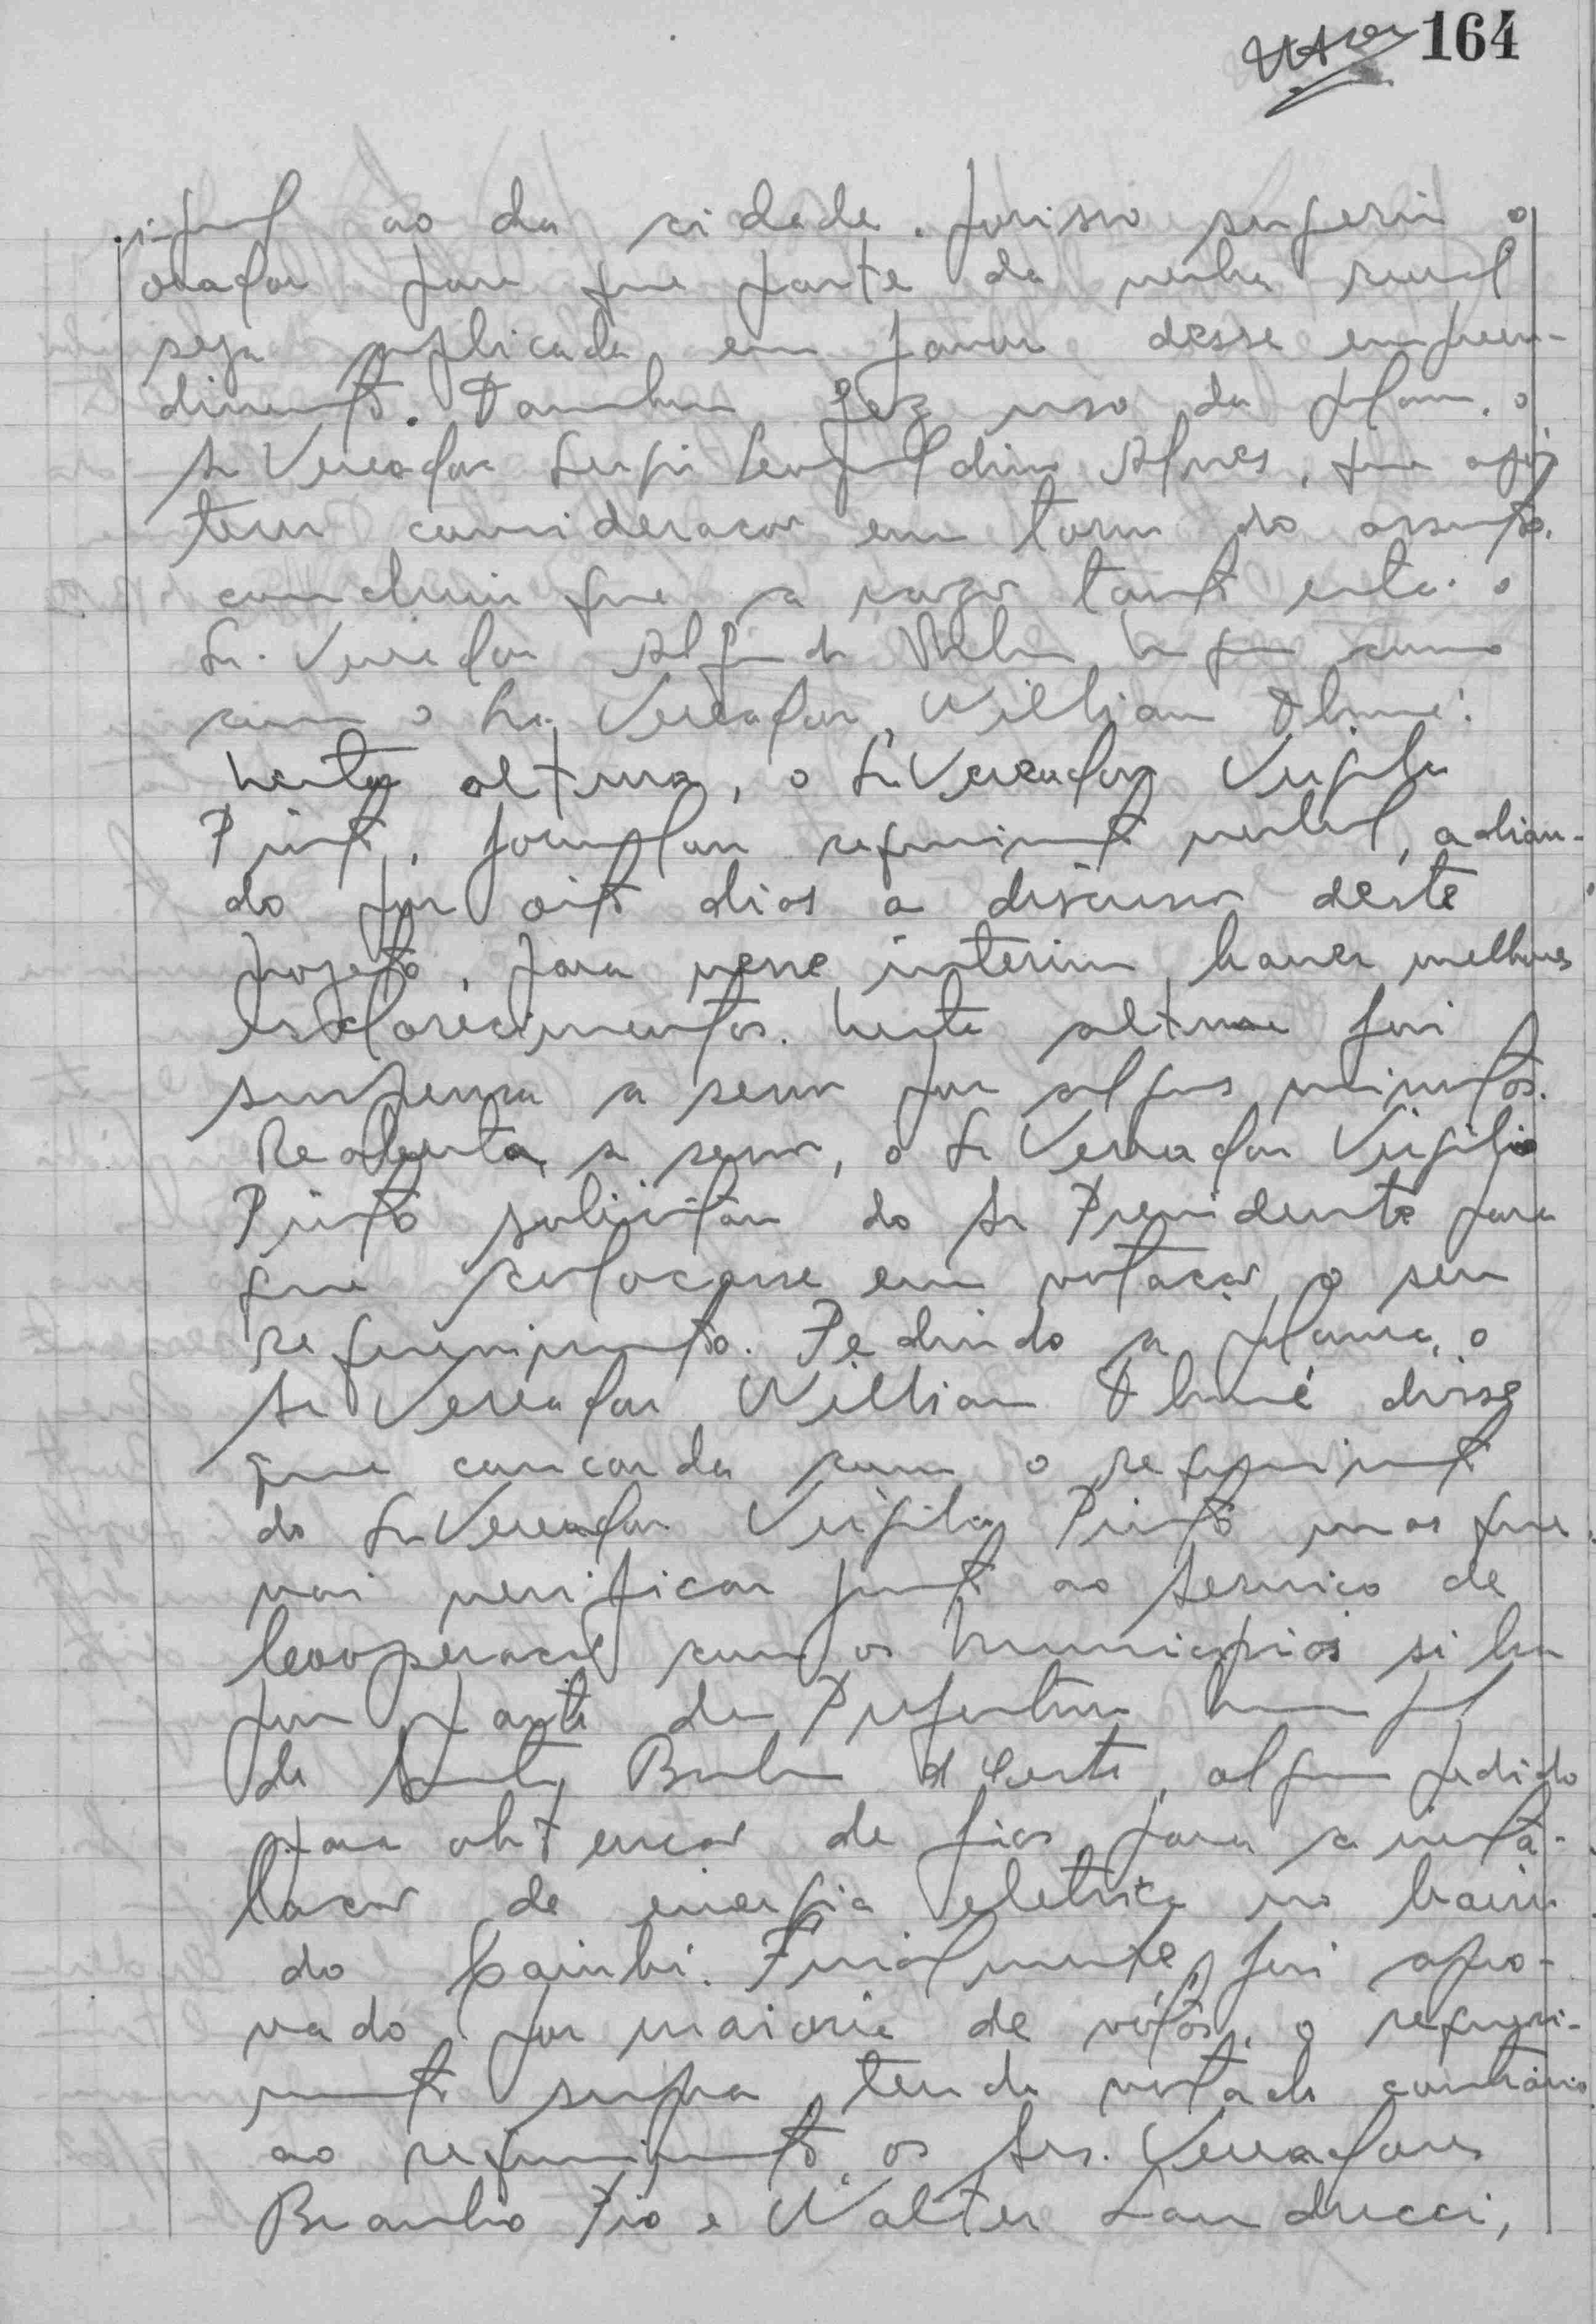 164
igual ao da cidade. Porisso sugeriu o
orador para que parte da verba rural
seja aplicada em favor desse empreen-
dimento. Tambem fez uso da palavra, o
Sr Vereador Leopoldino Alves, que após
tecer consideracão em torno do assunto,
concluiu que a razão tanto está o
Sr. Vereador como
com o Sr. Vereador Willian Thomé.
Nesta altura, o Sr Vereador Virgilio
Pinto, formulou requerimento verbal, adian-
do por oito dias a discusão deste
projeto, para nesse interim haver melhores
esclarecimentos. Nesta altura foi
suspensa a sesão por alguns minutos.
Reaberta a sesão, o Sr Vereador Virgilio
Pinto solicitou do Sr Presidente para
que colocasse em votacão o seu
requerimento. Pedindo a palavra, o
Sr Vereador Willian Thomé disse
que concorda com o requerimento
do Sr Vereador Virgilio Pinto mas que
vai verificar junto ao Serviço de
Cooperacão com os Municipios si ha
por parte da Prefeitura Municipal
de Santa Barbara d'Oeste, algum pedido
para obtencão de fios para a insta-
lacão de energia eletrica no bairro
do Caiubi. Finalmente, foi apro-
vado por maioria de votos, o requeri-
mento supra, tendo votado contrário
ao requerimento, os Srs. Vereadores
Braulio Pio e Walter Landucci,